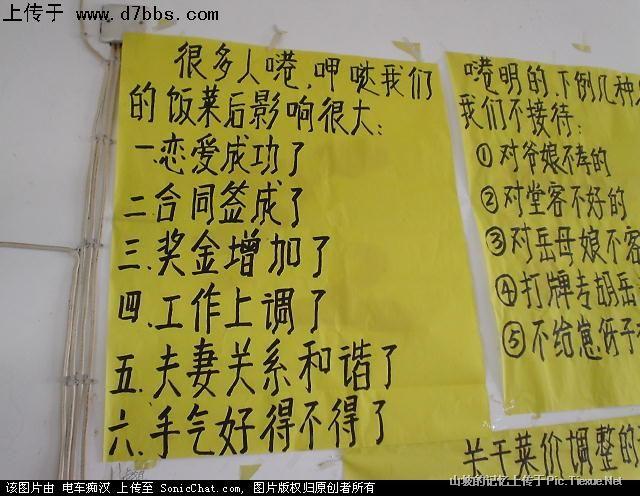 上传于 www.d7bbs.com
很多人嗯,呷哒我们
的饭菜后影响很大:
一.恋爱成功了
二.合同签成了
三.奖金增加了
四.工作上调了
五.夫妻关系和谐了
六.手气好得不得了
明的.下例几种
我们不接待:
①对爷娘不孝的
②对堂客不好的
③对岳母娘不客
④打牌专胡岳
⑤不给崽伢子
关于菜价调整的
该图片由 电车痴汉 上传至 SonicChat.com, 图片版权归原创者所有
山坡的记忆上传于Pic.Tiexue.Net